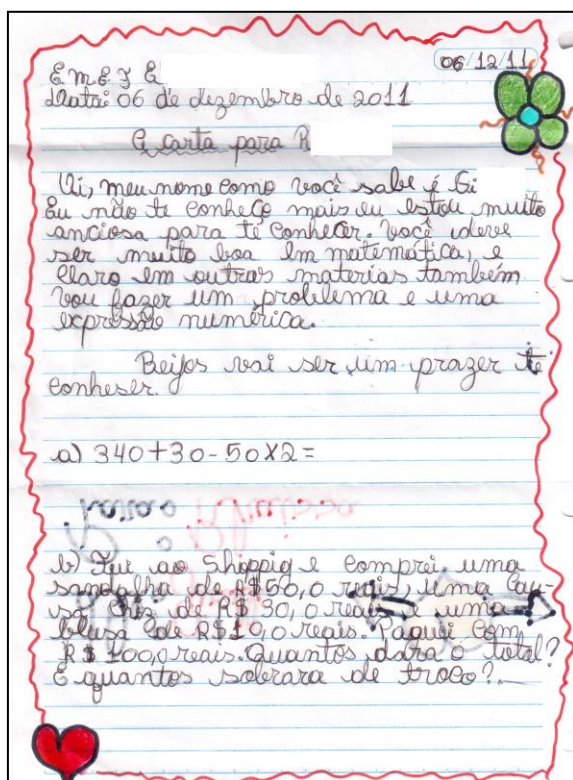 06/12/11
E M E F E
Data: 06 de dezembro de 2011
A carta para R
Oi, meu nome como você sabe é Gi
Eu não te conheço mais eu estou muito
anciosa para te conhecer. Você deve
ser muito boa em matemática, e
claro em outras materias também
vou fazer um problema e uma
expressão numérica.
Beijos vai ser um prazer te
conheser.
a) 340+30-50X2=
b) Fui ao Shoppig e comprei uma
sandalha de R$50,0 reais, uma cau-
sa de R$ 30,0 reais uma
blusa de R$10,0 reais. Paguei com
R$ 100,0 reais. Quantos dara o total?
E quantos sobrara de troco?